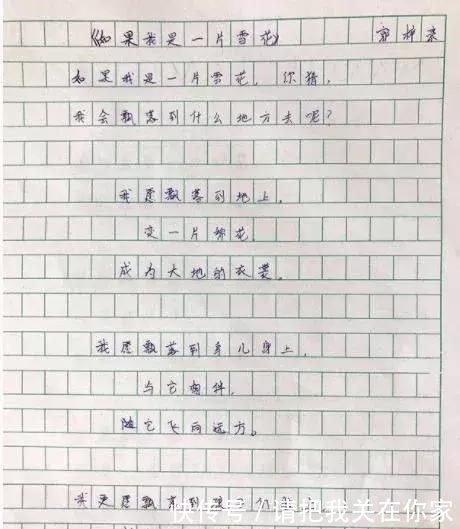 《如果我是一片雪花》
如果我是一片雪花，你猜，
我会飘落到什么地方去呢？
我愿飘落到地上，
变一片棉花，
成为大地的衣裳。
我愿飘落到鸟儿身上，
与它相伴，
随它飞向远方。
我更愿飘落到
快传号/请把我关在你家